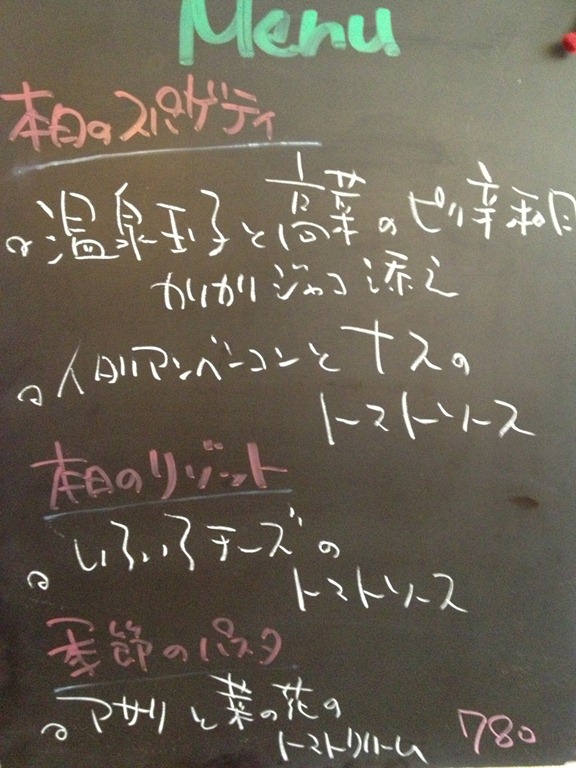 Menu
本日のスパゲティ
温泉玉子と高菜のピリ辛和風
かりかりジャコ添え
イタリアンベーコンとナスの
トマトソース
本日のリゾット
いろいろチーズの
トマトソース
季節のパスタ
アサリと菜の花の
トマトクリーム 780